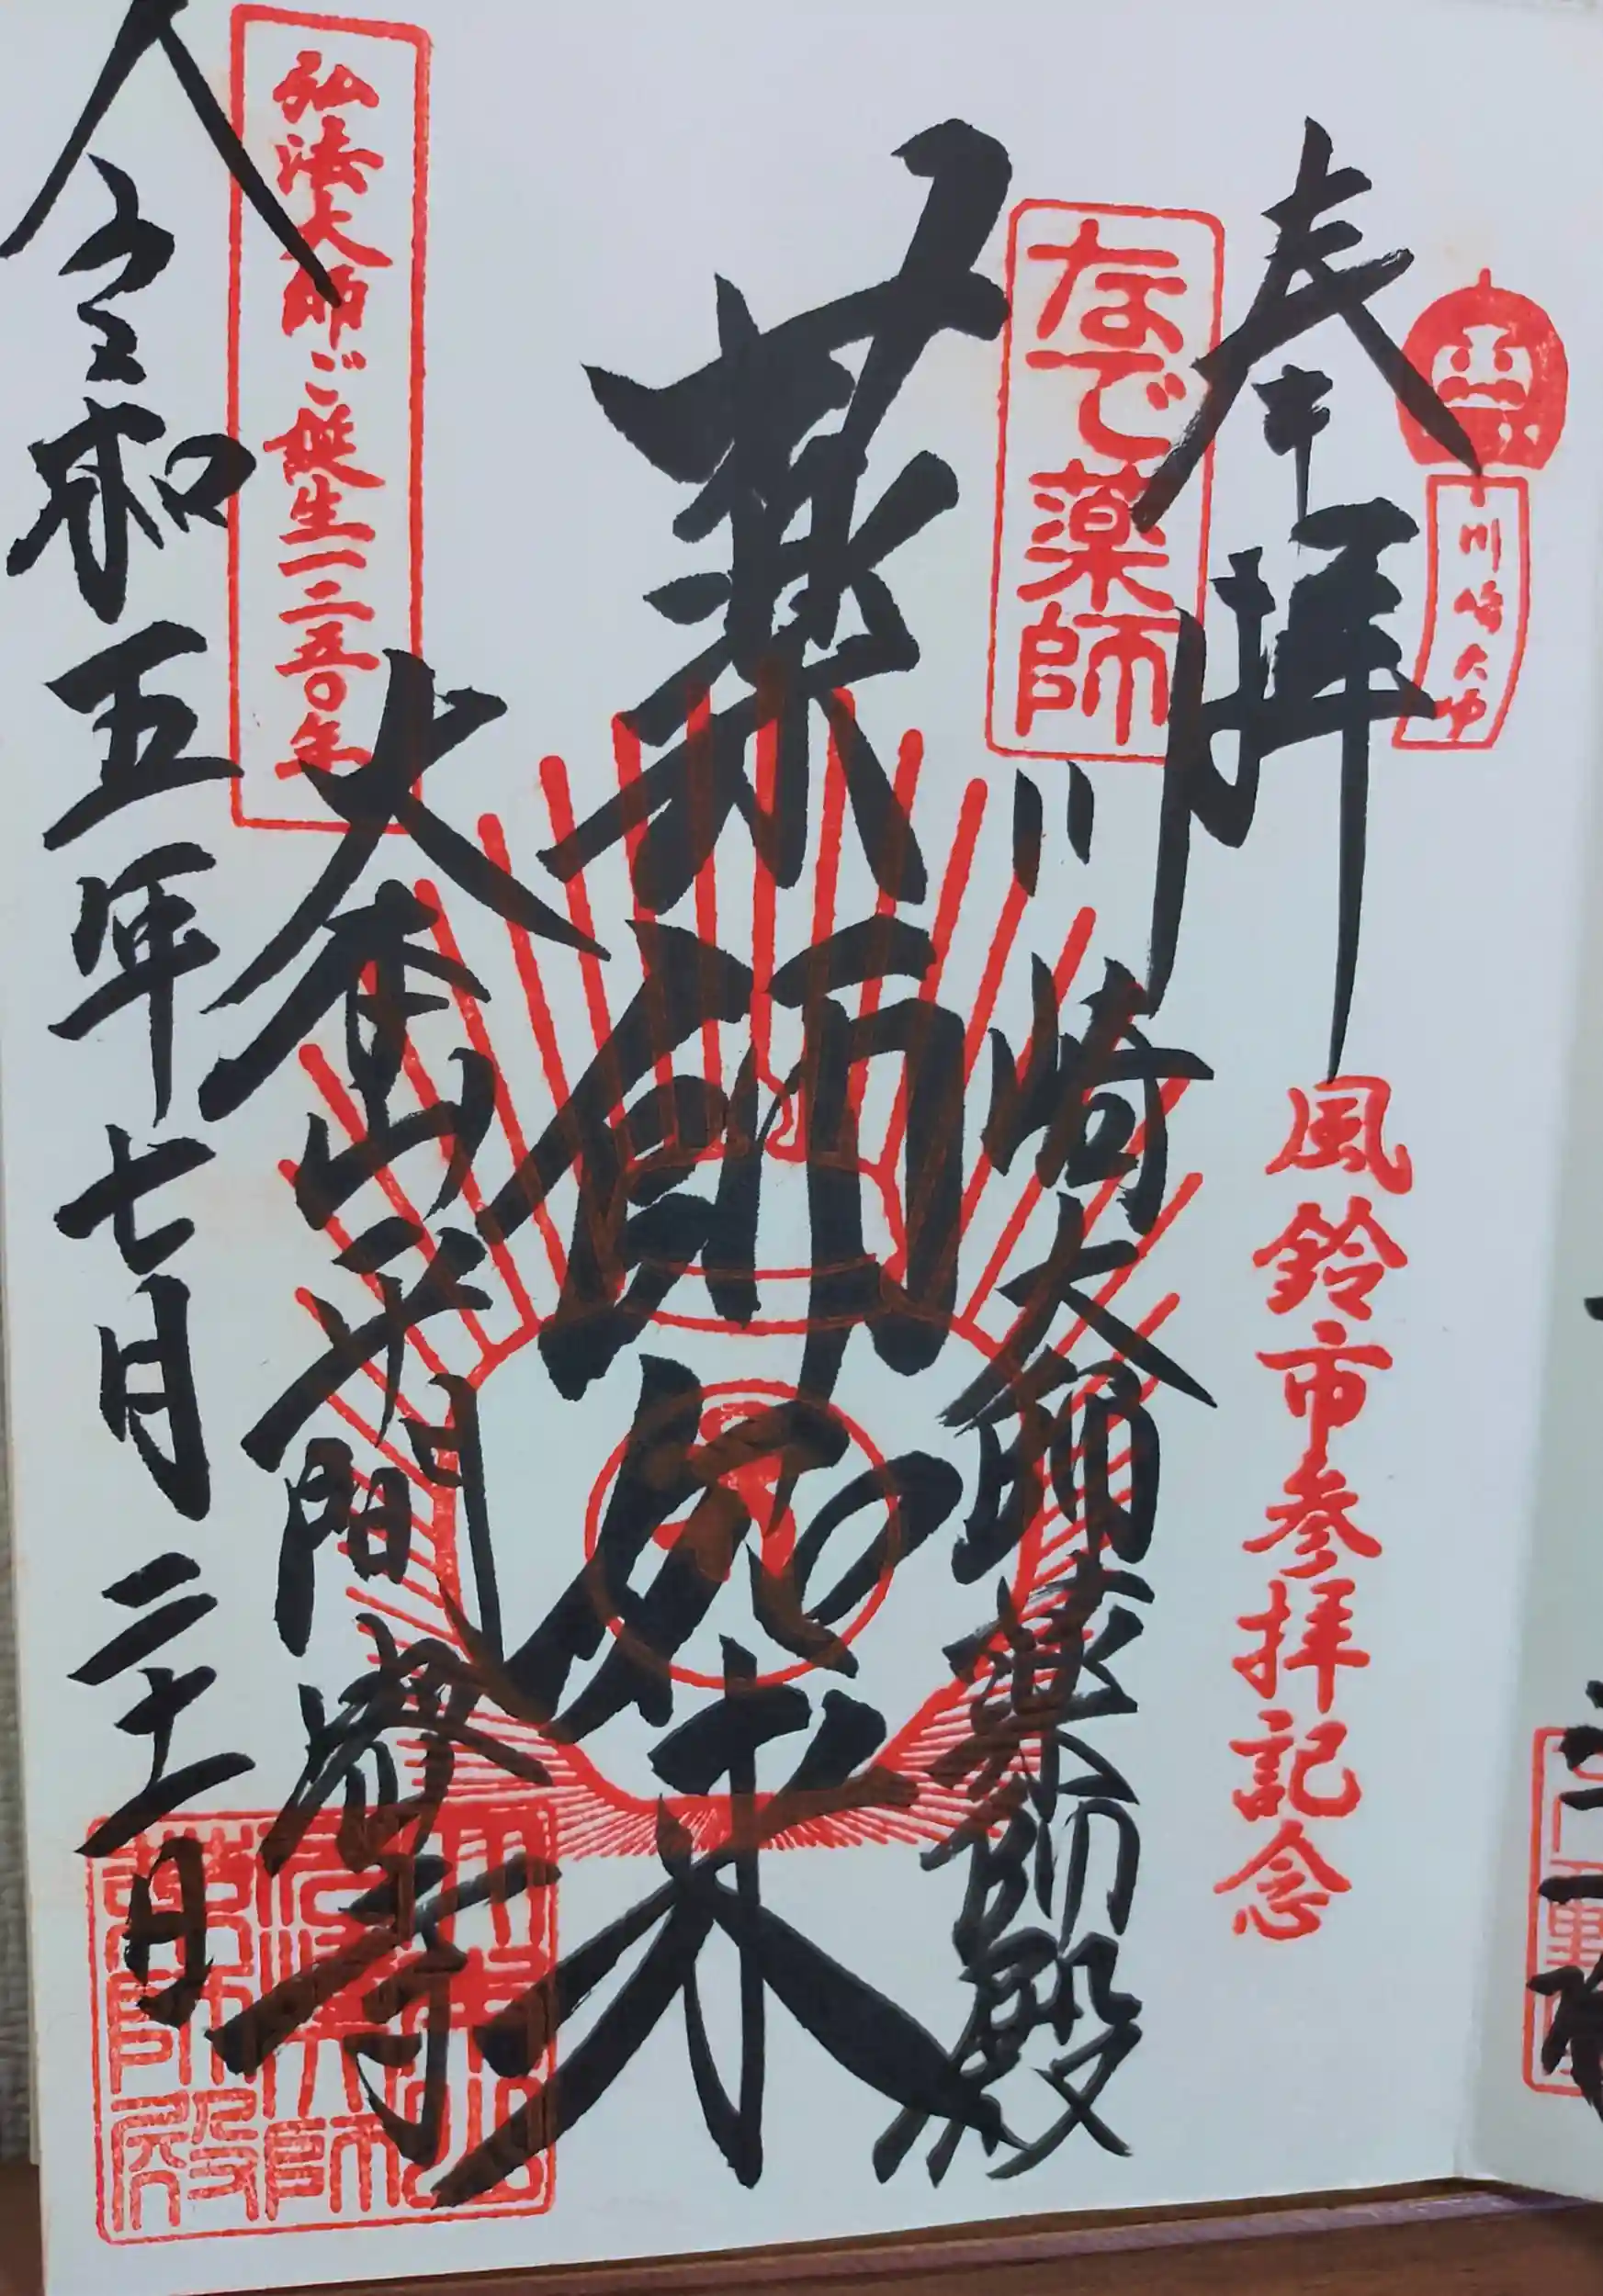 川崎大師
奉拝
風鈴市参拝記念
なで薬師
川崎大師薬師殿
薬師如来
大本山平間寺
弘法大師ご誕生一二五〇年
令和五年七月二十一日
薬師殿